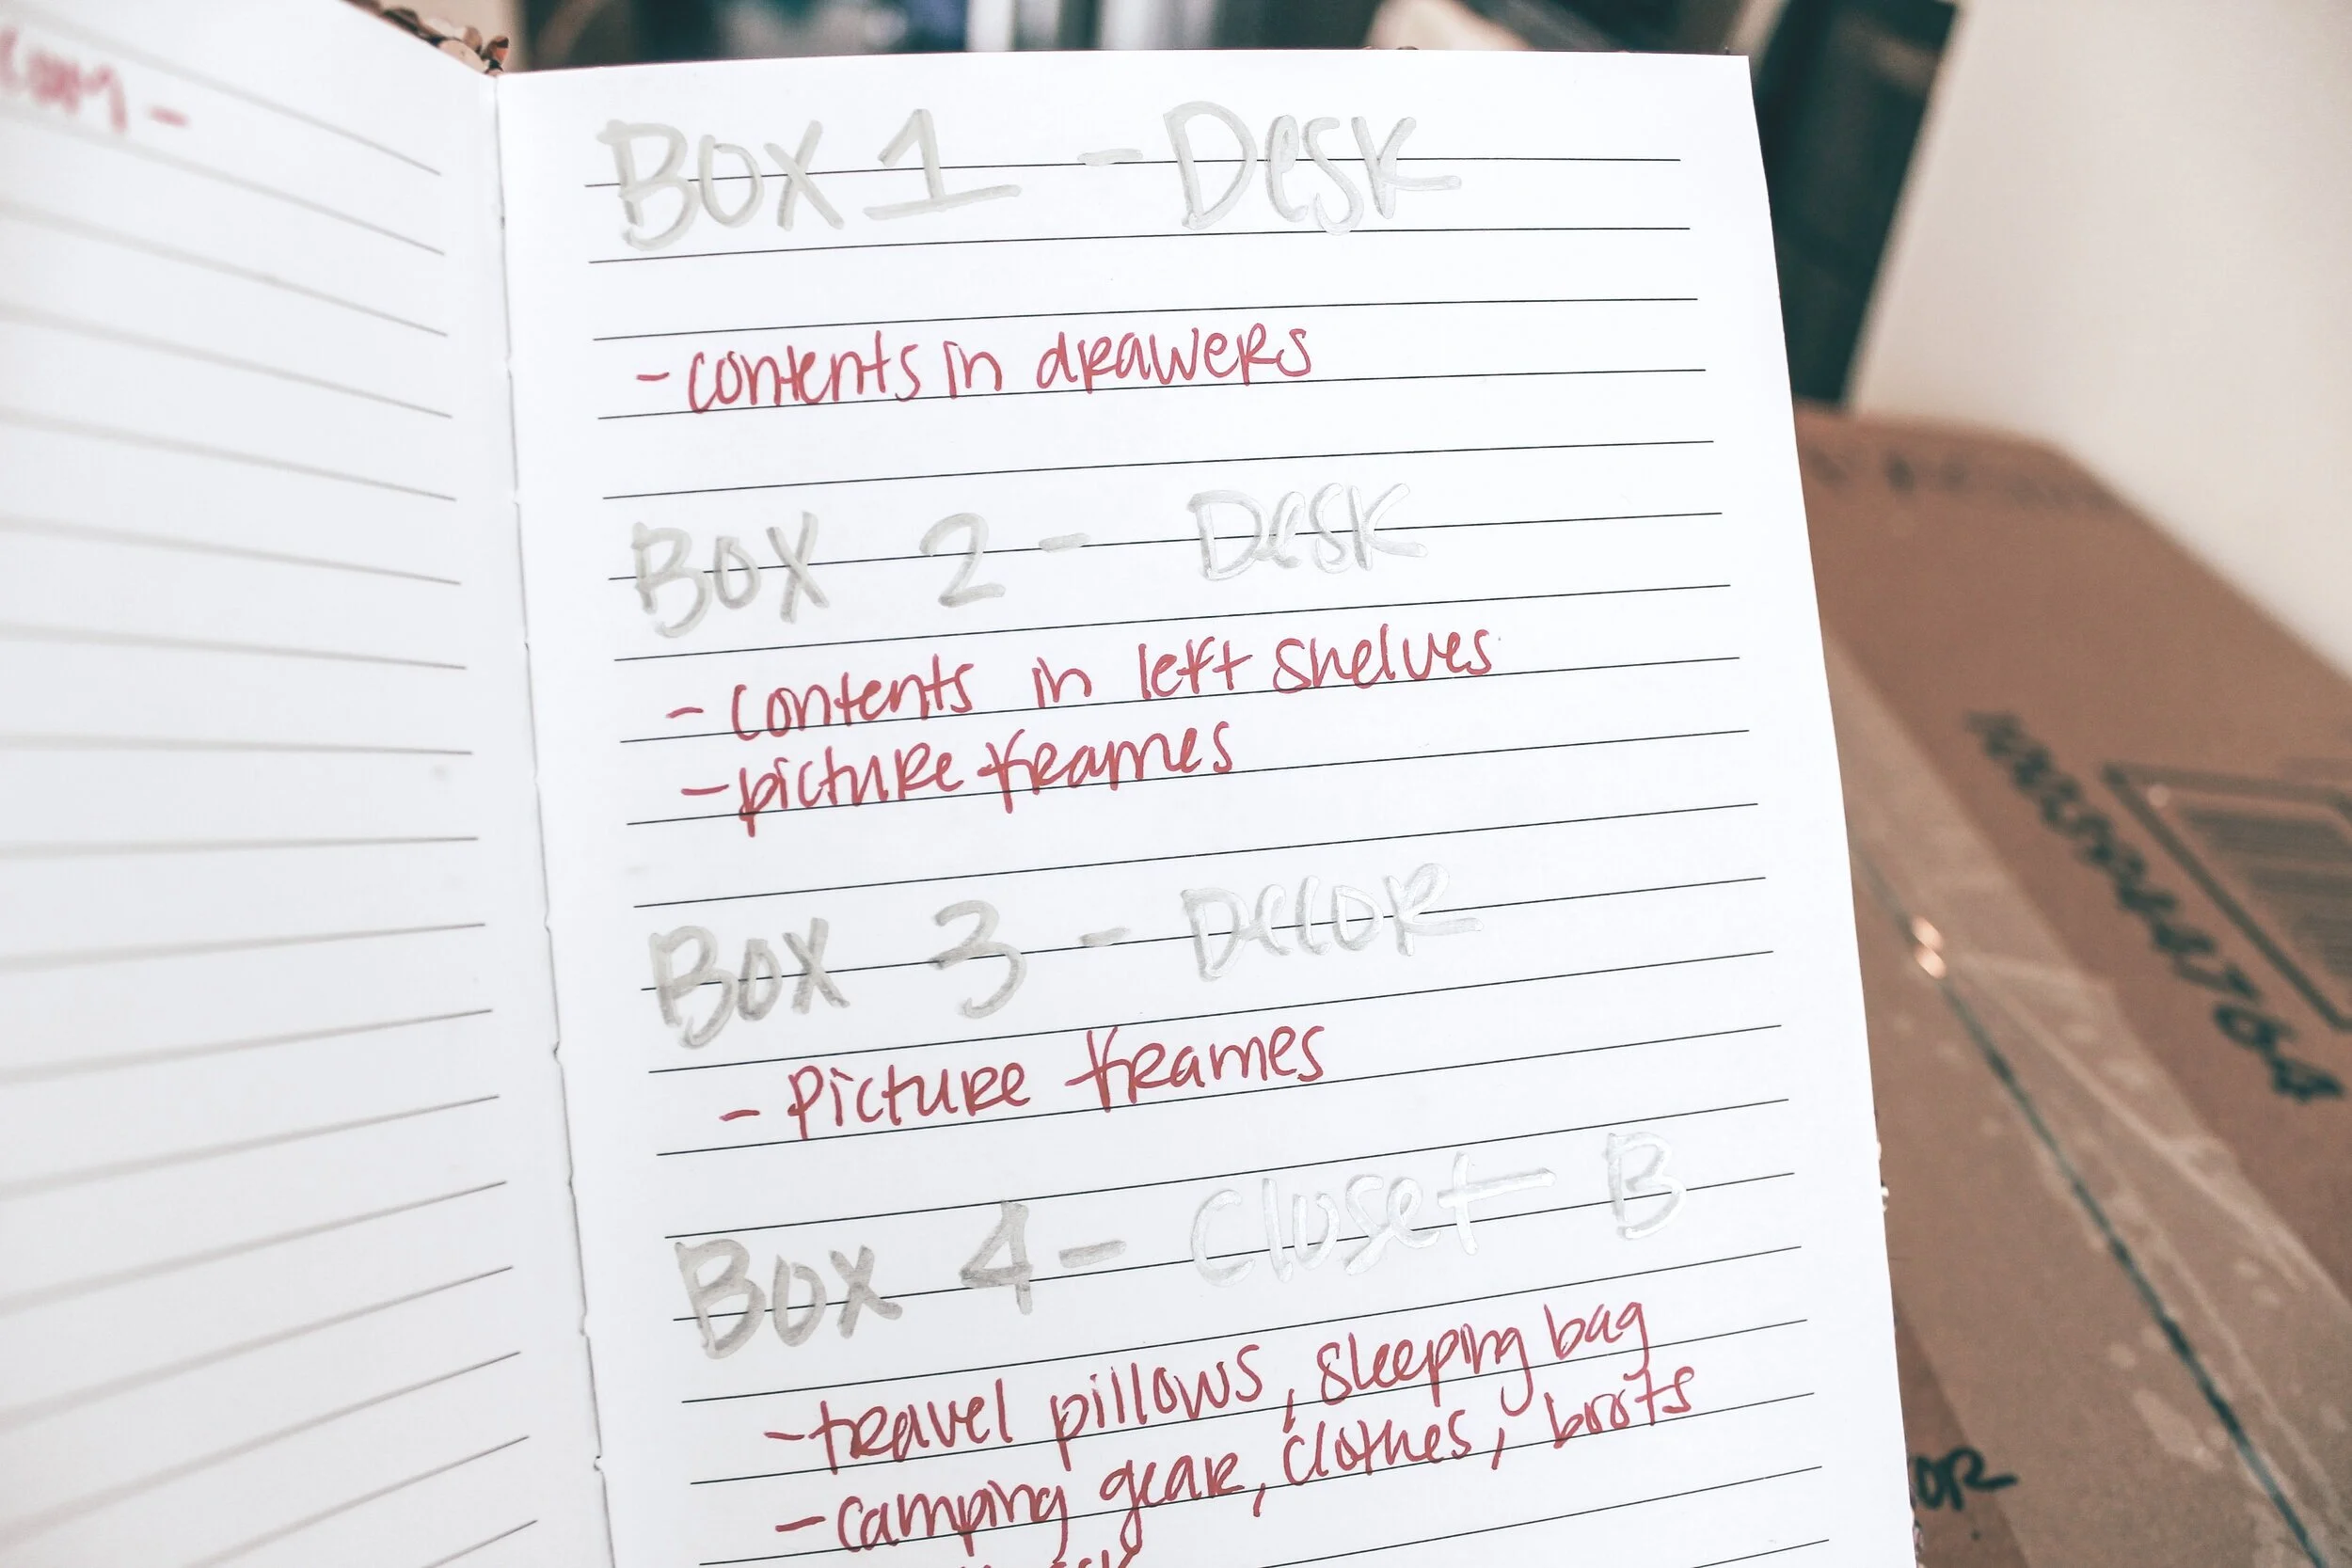 BOX 1 - Desk
- contents in drawers
BOX 2 - Desk
- contents in left shelves
- picture frames
BOX 3 - Decor
- Picture frames
BOX 4 - Closet B
- travel pillows, sleeping bag
- camping gear, clothes, boots